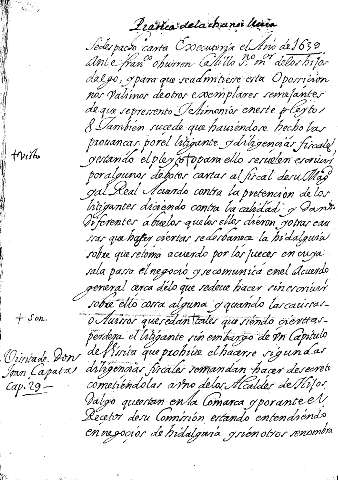 Practica de la chancilleria
Se despacho carta Executoria el Año de 1639
ante franco oburren Castillo sno mor de los hijos
dalgo, y para que se admitiese esta Oposicion
nos valimos de otros exemplares semejantes
de que se presento Testimonios en este pleyto
& Tambien sucede que haviendose hecho las
provanças por el litigante y diligencias fiscales
y estando el pleyto para ello se suelen escrivir
por algunos de potes cartas al fiscal de su Mag
y al Real Acuerdo contra la pretencion de los
litigantes diciendo contra la calidad y Dando
Diferentes abuelos que los ellos dieron y otras cau
sas que ha ser ciertas se desbarata la hidalguia
sobre que se toma acuerdo por los jueces en cuya
sala paso el negocio y se comunica en el Acuerdo
general cerca de lo que se deve hacer sin escrivir
sobre ello cossa alguna y quando las caussas
o Avisos que se dan tales que siendo ciertas
perdera el litigante sin embargo de Un Capitulo
de Visita que prohive el hacerse segundas
diligencias fiscales se mandan hacer de secreto
cometiendolas a Uno de los Alcaldes de Hijos
Dalgo que estan en la Comarca y por ante el
Recetor de su Comision estando entendiendo
en negocios de hidalguia y si en otros se nombra
+ visto
+ son
Visita de Don
Juan Capata
cap. 29